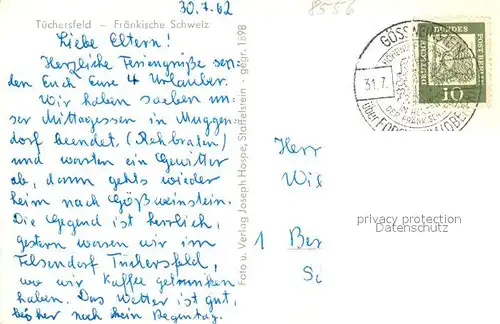 30.7.62
8556
Tüchersfeld – Fränkische Schweiz
Liebe Eltern!
Herzliche Feriengrüße sen-
den Euch Eure 4 Urlauber.
Wir haben soeben un-
ser Mittagessen in Muggen-
dorf beendet, (Rehbraten)
und warten ein Gewitter
ab, dann gehts wieder
heim nach Gößweinstein.
Die Gegend ist herrlich,
gestern waren wir im
Felsendorf Tüchersfeld,
wo wir Kaffee getrunken
haben. Das Wetter ist gut,
bisher noch kein Regentag.
Foto u. Verlag Joseph Hospe, Staffelstein · gegr. 1898
31.7.
über
DEUTSCHE
BUNDES
POST BERLIN
10
Herr
Wil
1 Ber
privacy protection
Datenschutz